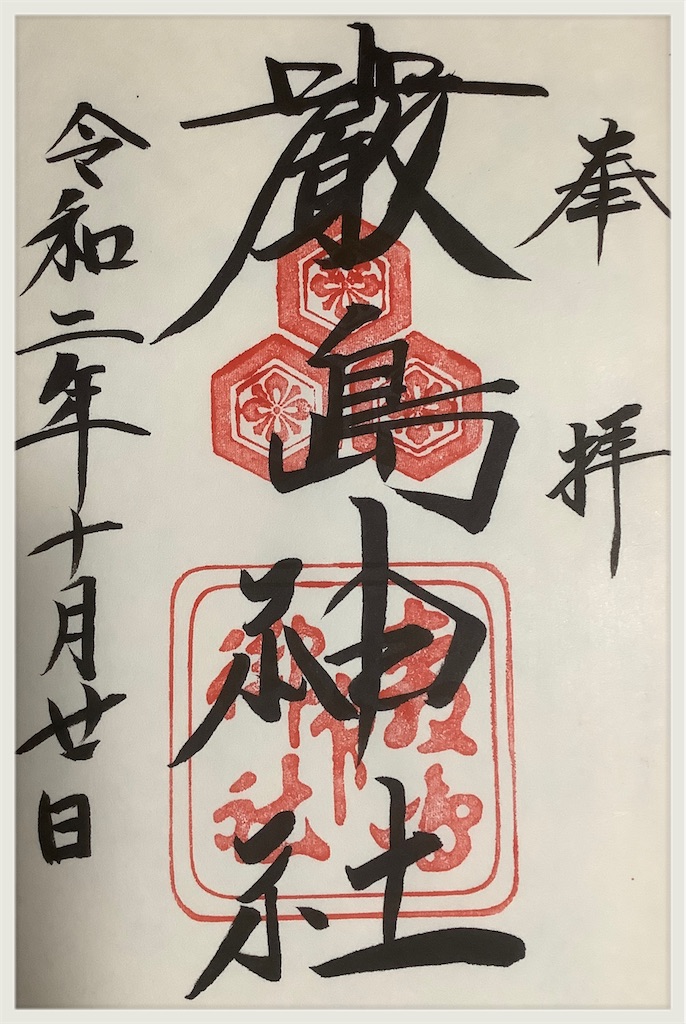 奉拝
厳島神社
令和二年十月廿日